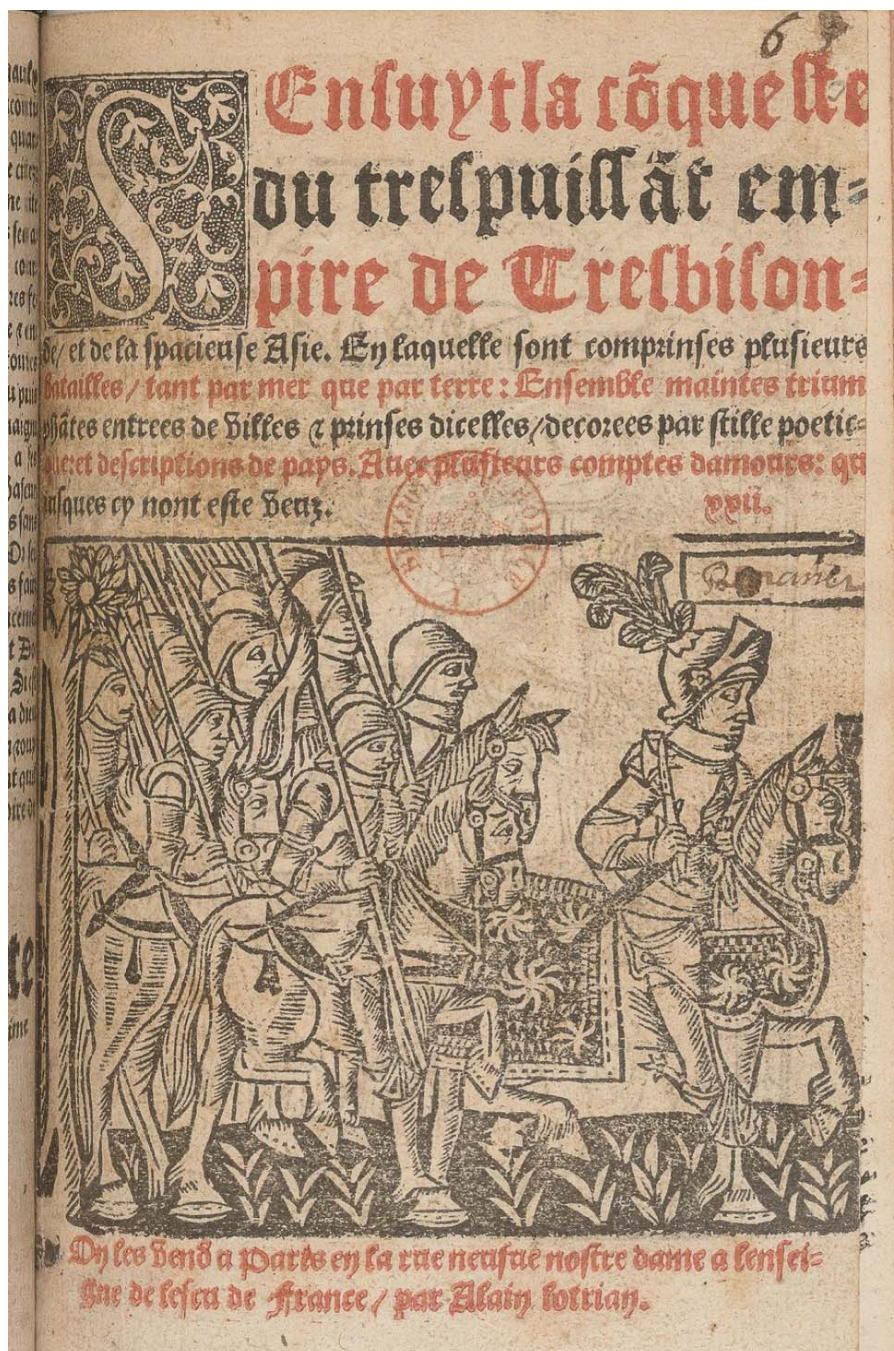 6
SEnsuyt la cõqueste
du trespuissãt em=
pire de Tresbison=
de/ et de la spacieuse Asie. En laquelle sont comprinses plusieurs
batailles/ tant par mer que par terre: Ensemble maintes trium
phãtes entrees de villes ⁊ prinses dicelles/ decorees par stille poetic=
que: et descriptions de pays. Avec plusieurs comptes damours: qui
iusques cy nont este veuz. xxii.
On les vend a Paris en la rue neufue nostre dame a lensei=
gne de lescu de France/ par Alain lotrian.